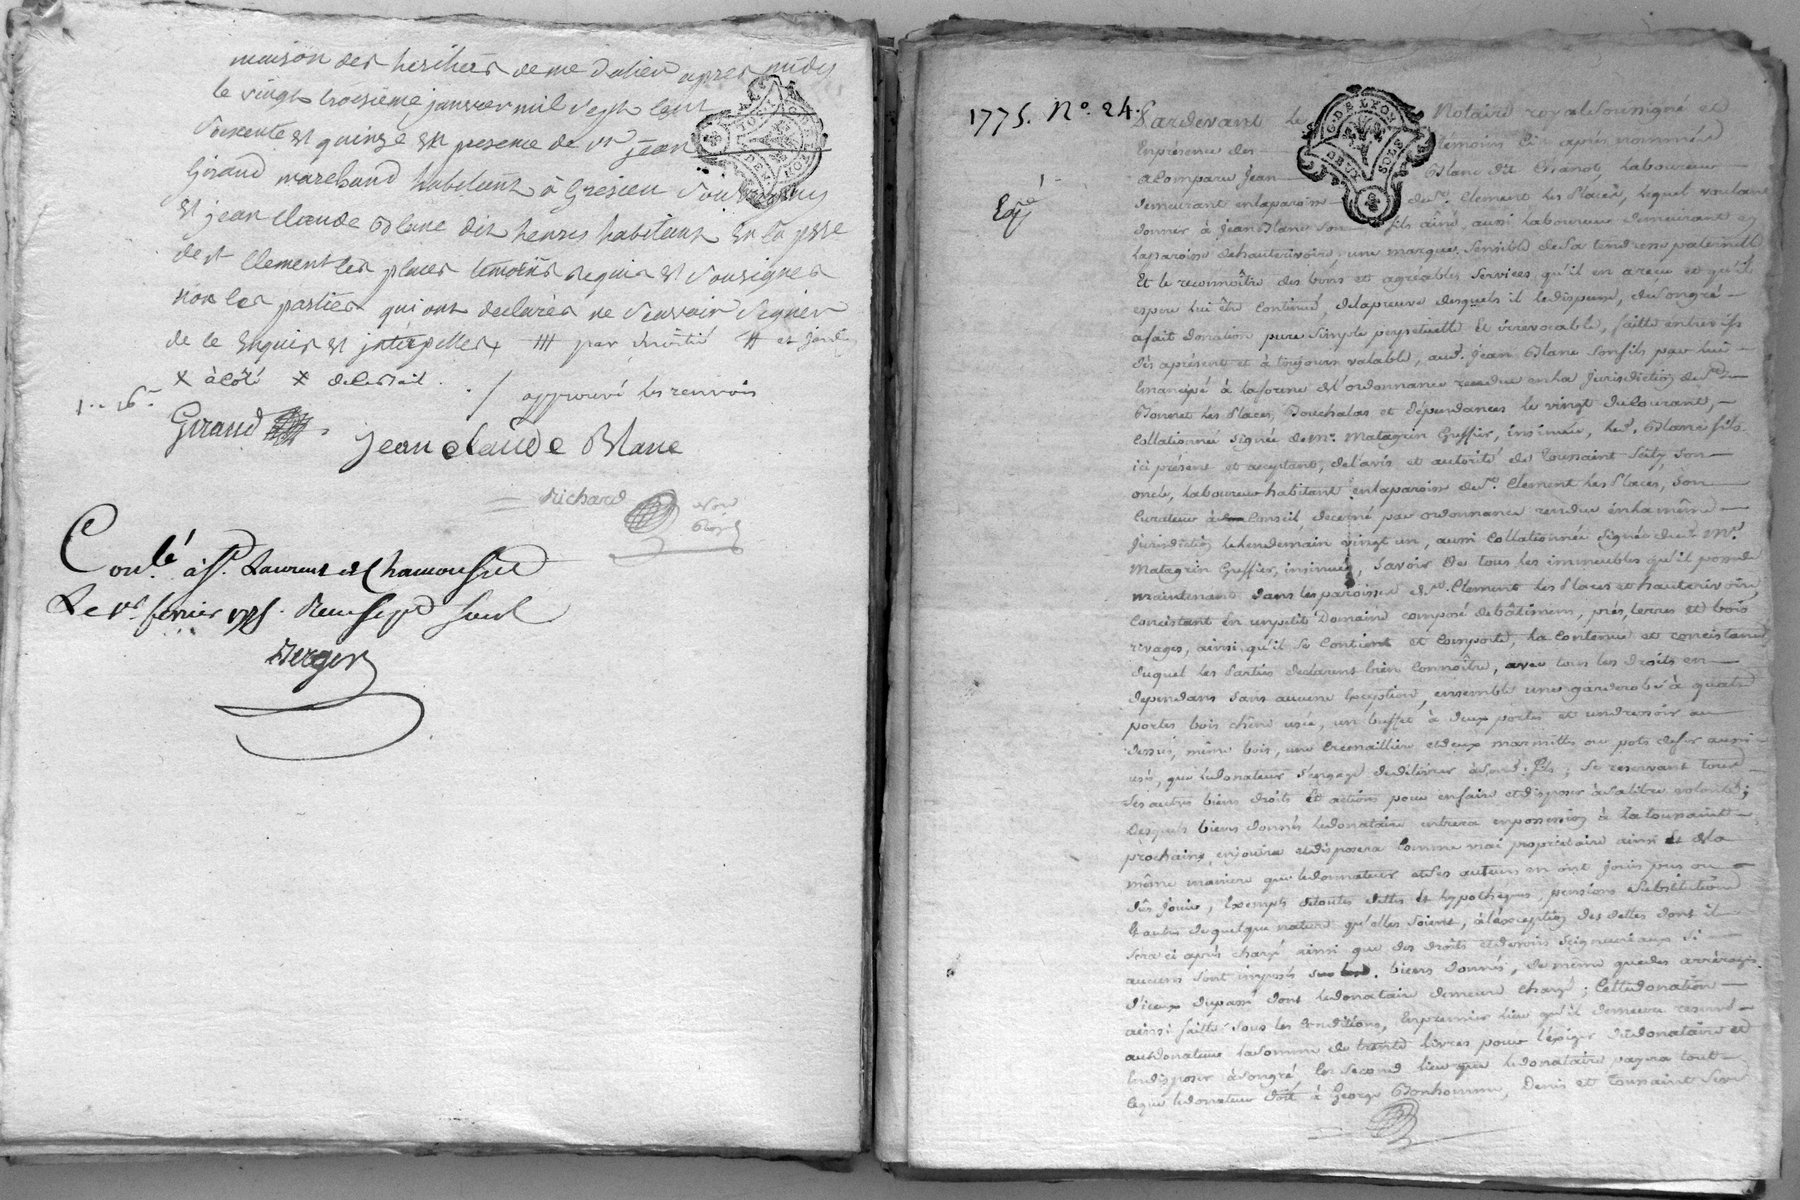 maison des heritiers de me dalier apres midy
le vingt troisième janvier mil sept cent
soixante et quinze en presence de sr jean
Giraud marchand habitant à Gresieu
et jean claude Blanc dit henry habitant en la psse
de st clement les places temoins requis et soussignes
non les parties qui ont declarés ne scavoir signer
de ce enquis et interpelles
x à côté x
approuvé les renvois
Giraud
jean claude Blanc
Richard
Conlé. à St. Laurent de Chamousset
Le 1er. fevrier 1775.
Berger
G. DE LYON
DEUX SOLS
1775. No. 24.
Pardevant le Notaire royal soussigné et
En présence des témoins Ci après nommés
a Comparu Jean Blanc dit Chanot, Laboureur
demeurant en la paroisse de St. Clement les Places, lequel voulant
donner à Jean Blanc son fils ainé, aussi Laboureur demeurant en
la paroisse de hauterivoire, une marque sensible de sa tendresse paternelle
Et le reconnoître des bons et agréables services qu'il en a reçu et qu'il
espere lui être Continué, de la preuve desquels il le dispense, de son gré
a fait donation pure simple perpetuelle et irrévocable, faitte entre vifs
dès aprésent et à toujours valable, aud. Jean Blanc son fils par lui
Emancipé à la forme de l'ordonnance rendue en la Jurisdiction de
les Places, Souchalas et dépendances le vingt du Courant,
Collationnée signée de Mr. Matagrin Greffier, insinuée, led. Blanc fils
ici présent et acceptant, de l'avis et autorité de Toussaint son
oncle, Laboureur habitant en la paroisse de St. Clement les Places, son
Curateur à Conseil, décerné par ordonnance rendue en la même
Jurisdiction le lendemain vingt un, aussi Collationnée signée dud. Mr.
Matagrin Greffier, insinuée, Savoir De tous les immeubles qu'il possede
maintenant dans les paroisses de St. Clement les Places et hauterivoire,
Concistant en un petit Domaine composé de bâtimens, près, terres et bois
rivages, ainsi qu'il se Contient et Comporte, la Contenue et concistance
duquel les Parties declarent bien Connoître, avec tous les droits en
dependans sans aucune Exception, ensemble une garderobe à quatre
portes bois chêne usée, un buffet à deux portes et un dressoir au
dessus, même bois, une Cremaillere et deux marmittes ou pots de fer aussi
usés, que le donateur s'engage de délivrer à sond. fils; se reservant tous
ses autres biens droits et actions pour en faire et disposer à sa libre volonté;
Desquels biens donnés le donataire entrera en possession à la toussaint
prochaine, en jouira et disposera Comme vrai propriétaire ainsi et de la
même maniere que le donnateur et ses auteurs en ont Jouis pus ou
dûs Jouir, Exempts de toutes dettes et hypotheques, pensions substitutions
Et autres de quelque nature qu'elles soient, à l'exception des dettes dont il
sera ci après chargé ainsi que des droits et devoirs Seigneuriaux si
aucuns sont imposés sur les d. biens donnés, de même que des arrérages
d'iceux du passé dont le donataire demeure chargé; Cette donation
ainsi faitte sous les Conditions, En premier lieu qu'il demeure reservé
au donateur la somme de trente livres pour l'exiger du donataire et
En disposer à son gré En second lieu que le donataire payera tout
ce que le donateur doit à George Bonhomme, Denis et Toussaint